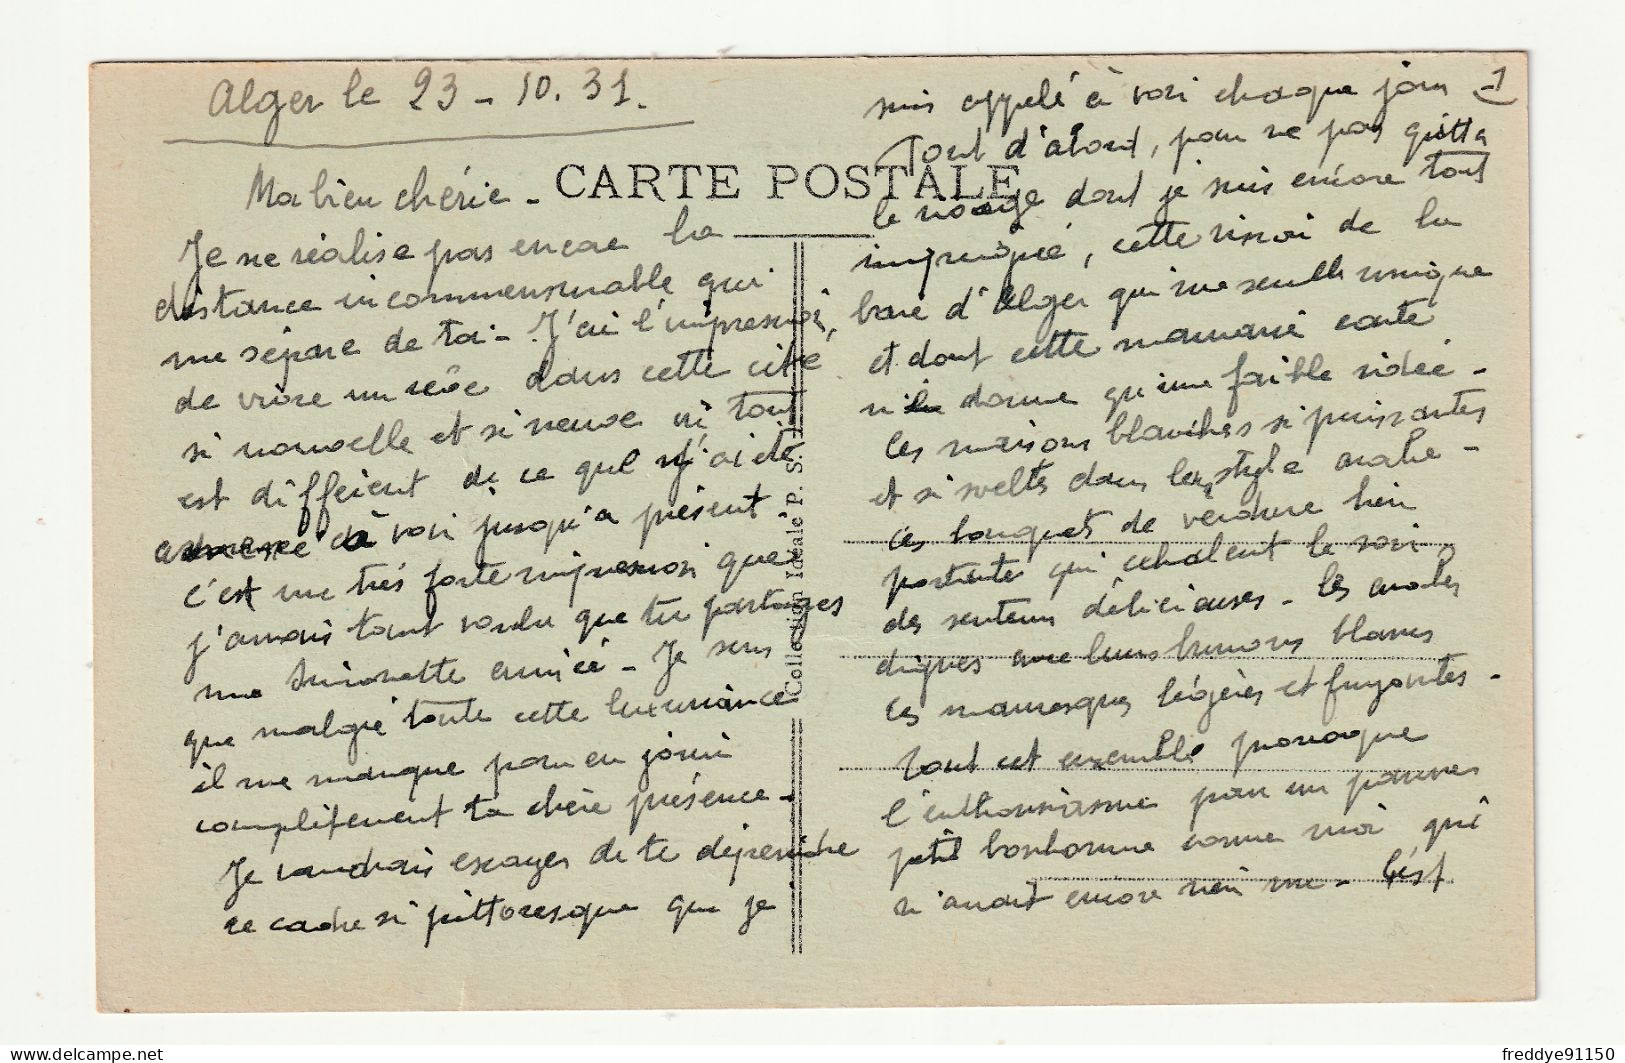 Alger le 23 - 10. 31.
CARTE POSTALE
Ma bien chérie -
Je ne réalise pas encore la
distance incommensurable qui
me sépare de toi - J'ai l'impression,
de vivre un rêve dans cette cité
si nouvelle et si neuve où tout
est différent de ce que j'ai été
à voir jusqu'à présent -
c'est une très forte impression que
j'aurais tant voulu que tu partages
ma Simonette aimée - Je sens
que malgré toute cette luxuriance
il me manque pour en jouir
complètement ta chère présence -
Je voudrais essayer de te dépeindre
ce cadre si pittoresque que je
Collection Idéale P. S.
1
suis appelé à voir chaque jour -
Tout d'abord, pour ne pas quitter
le rivage dont je suis encore tout
imprégné, cette vision de la
baie d'Alger qui me semble unique
et dont cette mauvaise carte
n'en donne qu'une faible idée -
Ces maisons blanches si puissantes
et si sveltes dans leur style arabe -
ces bouquets de verdure bien
portante qui exhalent le soir
des senteurs délicieuses - les arabes
dignes avec leurs burnous blancs
ces mauresques légères et fuyantes -
Tout cet ensemble provoque
l'enthousiasme pour un pauvre
petit bonhomme comme moi qui
n'avait encore rien vu - C'est
freddye91150